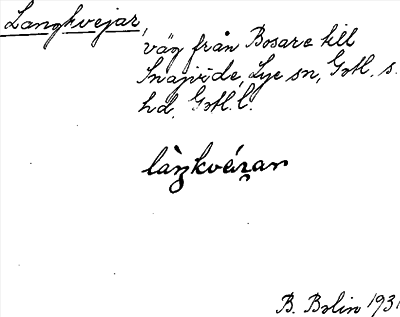 Langkvejar,
väg från Bosare till
Snajvide, Lye sn, Gotl. s.
hd, Gotl. l.
làŋkvéʒan
B. Bolin 1931